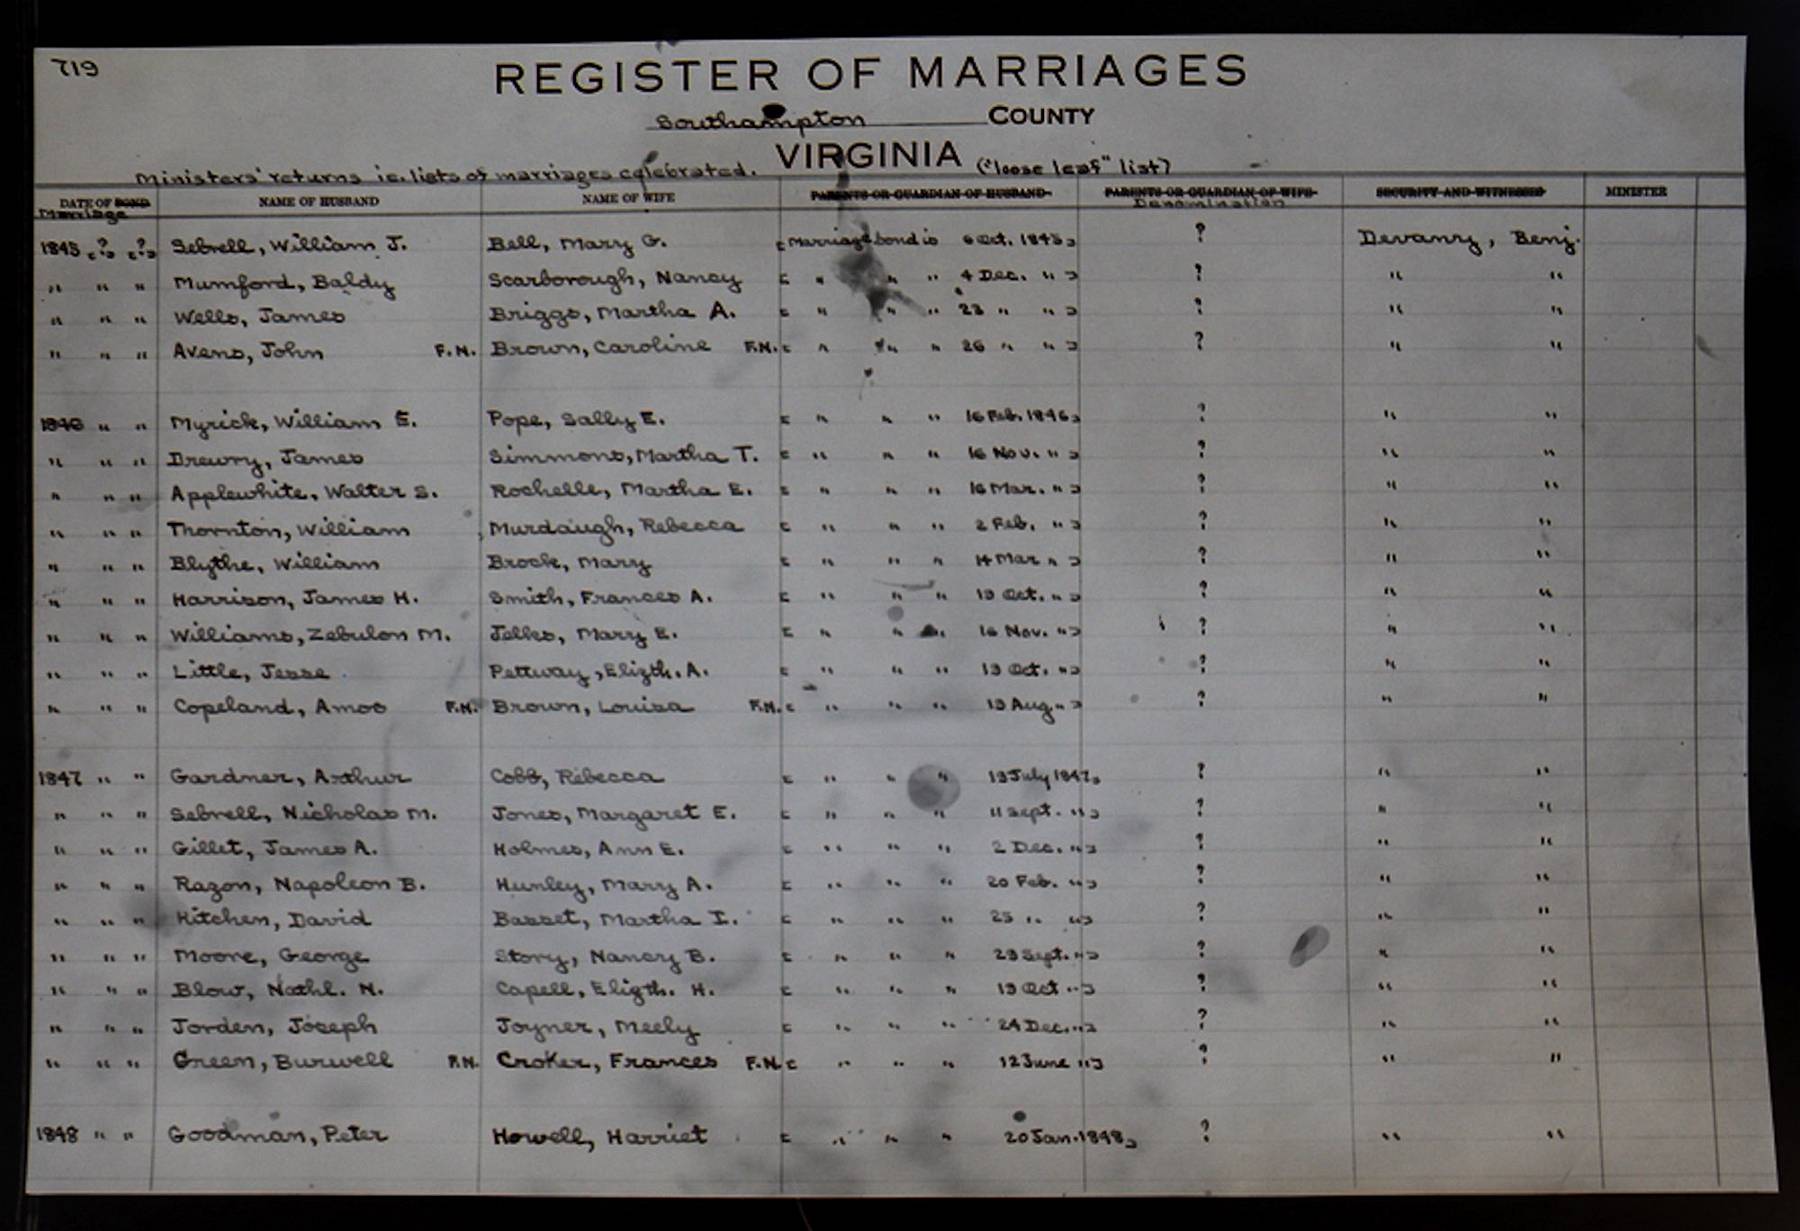 719
REGISTER OF MARRIAGES
Southampton COUNTY
VIRGINIA
Ministers' returns ie. lists of marriages celebrated. ("loose leaf" list)
DATE OF BOND Marriage NAME OF HUSBAND NAME OF WIFE PARENTS OR GUARDIAN OF HUSBAND PARENTS OR GUARDIAN OF WIFE Denomination SECURITY AND WITNESSES MINISTER
1845 [?] [?] Sebrell, William J. Bell, Mary G. [Marriage bond is 6 Oct. 1845] ? Devanny, Benj.
" " " Mumford, Baldy Scarborough, Nancy [ " " " 4 Dec. " ] ? " "
" " " Wells, James Briggs, Martha A. [ " " " 23 " " ] ? " "
" " " Avens, John F.N. Brown, Caroline F.N. [ " " " 26 " " ] ? " "
1846 " " Myrick, William E. Pope, Sally E. [ " " " 16 Feb. 1846] ? " "
" " " Drewry, James Simmons, Martha T. [ " " " 16 Nov. " ] ? " "
" " " Applewhite, Walter S. Rochelle, Martha E. [ " " " 16 Mar. " ] ? " "
" " " Thornton, William Murdaugh, Rebecca [ " " " 2 Feb. " ] ? " "
" " " Blythe, William Brock, Mary [ " " " 14 Mar " ] ? " "
" " " Harrison, James H. Smith, Frances A. [ " " " 19 Oct. " ] ? " "
" " " Williams, Zebulon M. Jelks, Mary E. [ " " " 16 Nov. " ] ? " "
" " " Little, Jesse Pettway, Elizth. A. [ " " " 19 Oct. " ] ? " "
" " " Copeland, Amos F.N. Brown, Louisa F.N. [ " " " 19 Aug " ] ? " "
1847 " " Gardner, Arthur Cobb, Rebecca [ " " " 19 July 1847] ? " "
" " " Sebrell, Nicholas M. Jones, Margaret E. [ " " " 11 Sept. " ] ? " "
" " " Gillet, James A. Holmes, Ann E. [ " " " 2 Dec. " ] ? " "
" " " Razon, Napoleon B. Hunley, Mary A. [ " " " 20 Feb. " ] ? " "
" " " Kitchen, David Basset, Martha I. [ " " " 25 " " ] ? " "
" " " Moore, George Story, Nancy B. [ " " " 29 Sept. " ] ? " "
" " " Blow, Nathl. N. Capell, Elizth. H. [ " " " 19 Oct " ] ? " "
" " " Jorden, Joseph Joyner, Meely [ " " " 24 Dec. " ] ? " "
" " " Green, Burwell F.N. Croker, Frances F.N. [ " " " 12 June " ] ? " "
1848 " " Goodman, Peter Howell, Harriet [ " " " 20 Jan. 1848] ? " "